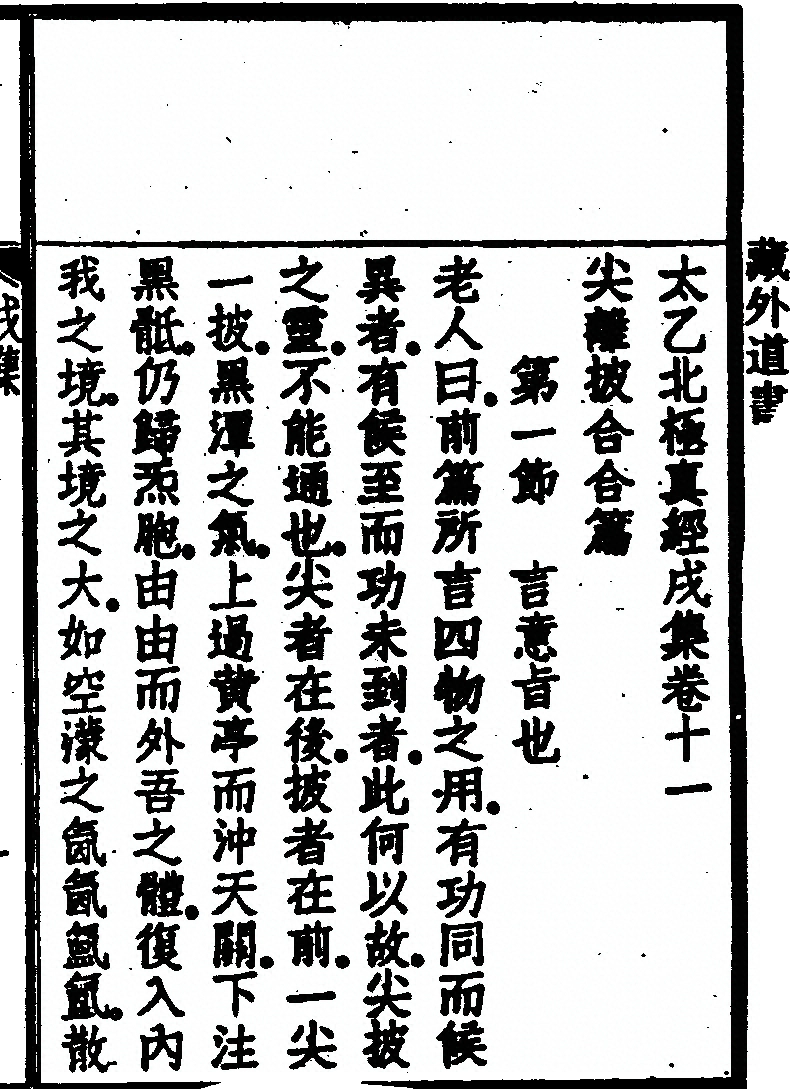 藏外道書
太乙北極真經戌集卷十一
尖離披合合篇
第一節　言意旨也
老人曰.前篇所言四物之用.有功同而候
異者.有候至而功未到者.此何以故.尖披
之靈.不能通也.尖者在後.披者在前.一尖
一披.黑潭之氣.上過黃亭而沖天關.下注
黑骶.仍歸炁胞.由由而外吾之體.復入內
我之境.其境之大.如空濛之氤氤氳氳.散
戌集